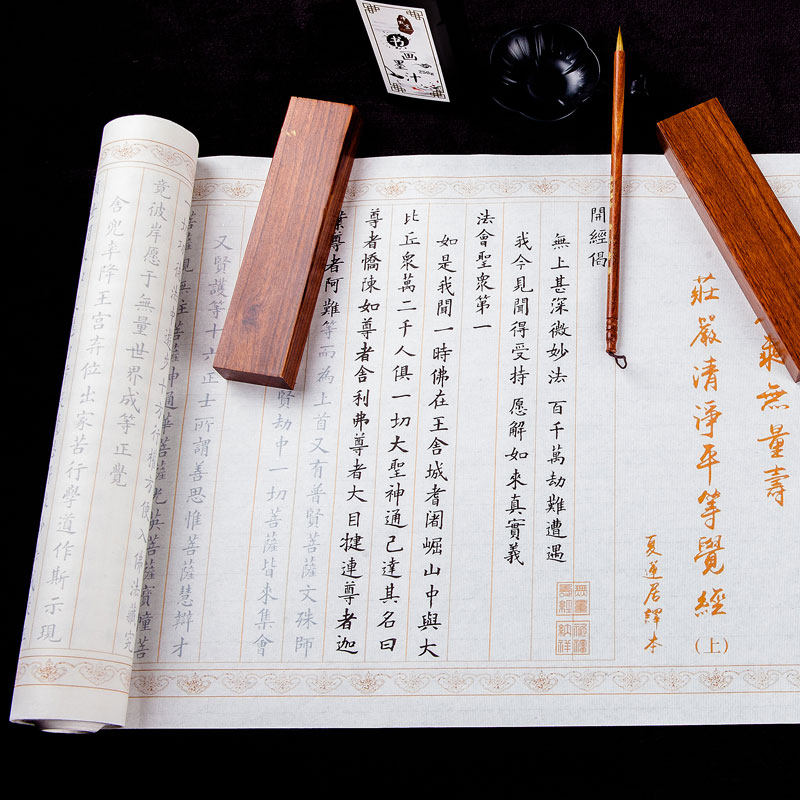 乘無量壽
莊嚴清淨平等覺經(上)
夏蓮居繹本
開經偈
無上甚深微妙法 百千萬劫難遭遇
我今見聞得受持 愿解如來真實義
法會聖眾第一
如是我聞一時佛在王舍城耆闍崛山中與大
比丘眾萬二千人俱一切大聖神通已達其名曰
尊者憍陳如尊者舍利弗尊者大目犍連尊者迦
葉尊者阿難等而為上首又有普賢菩薩文殊師
賢劫中一切菩薩皆來集會
又賢護等十六正士所謂善思惟菩薩慧辯才
菩薩觀無住菩薩神通華菩薩光英菩薩寶幢菩
竟彼岸愿于無量世界成等正覺
舍兜率降王宮弃位出家苦行學道作斯示現
無量壽經
书画墨汁
250g